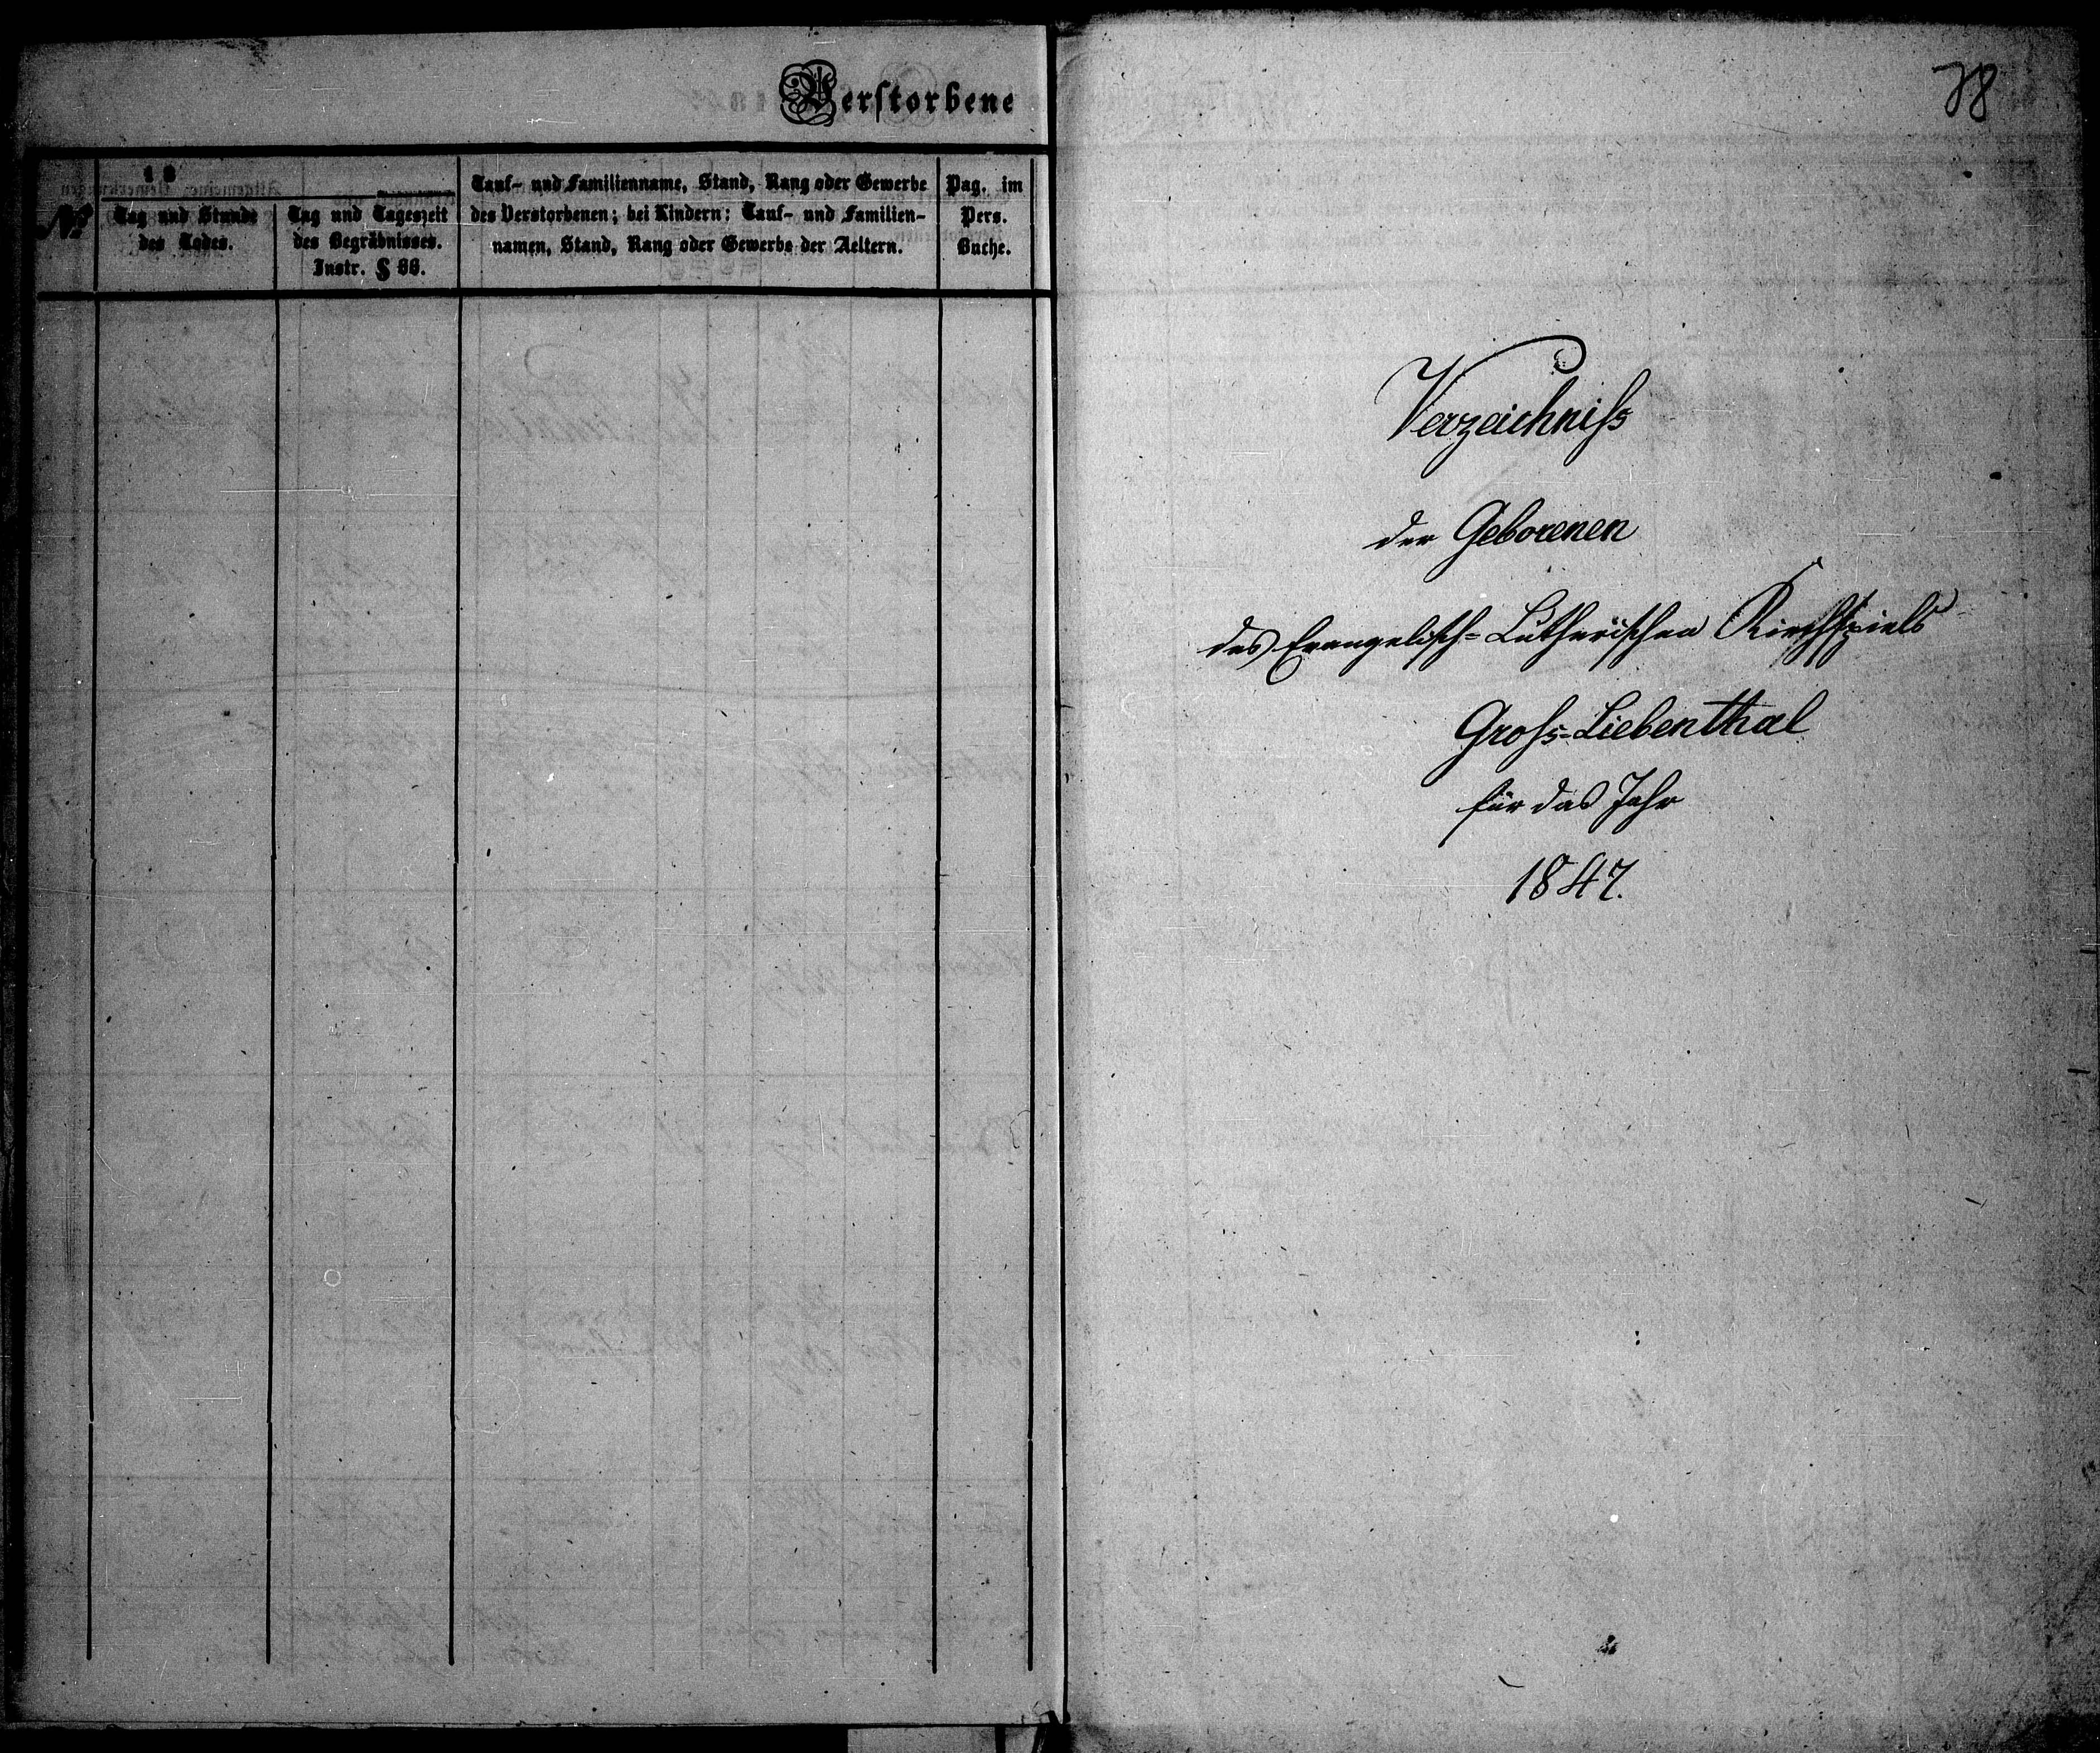 Verstorbene
№
18
Tag und Stunde
des Todes.
Tag und Tageszeit
des Begräbnisses.
Instr. § 86.
Tauf- und Familienname, Stand, Rang oder Gewerbe
des Verstorbenen; bei Kindern: Tauf- und Familien-
namen, Stand, Rang oder Gewerbe der Aeltern.
Pag. im
Pers.
Buche.
78
Verzeichniſs
der Geborenen
des Evangelisch-Lutherischen Kirchspiels
Groſs-Liebenthal
für das Jahr
1847.